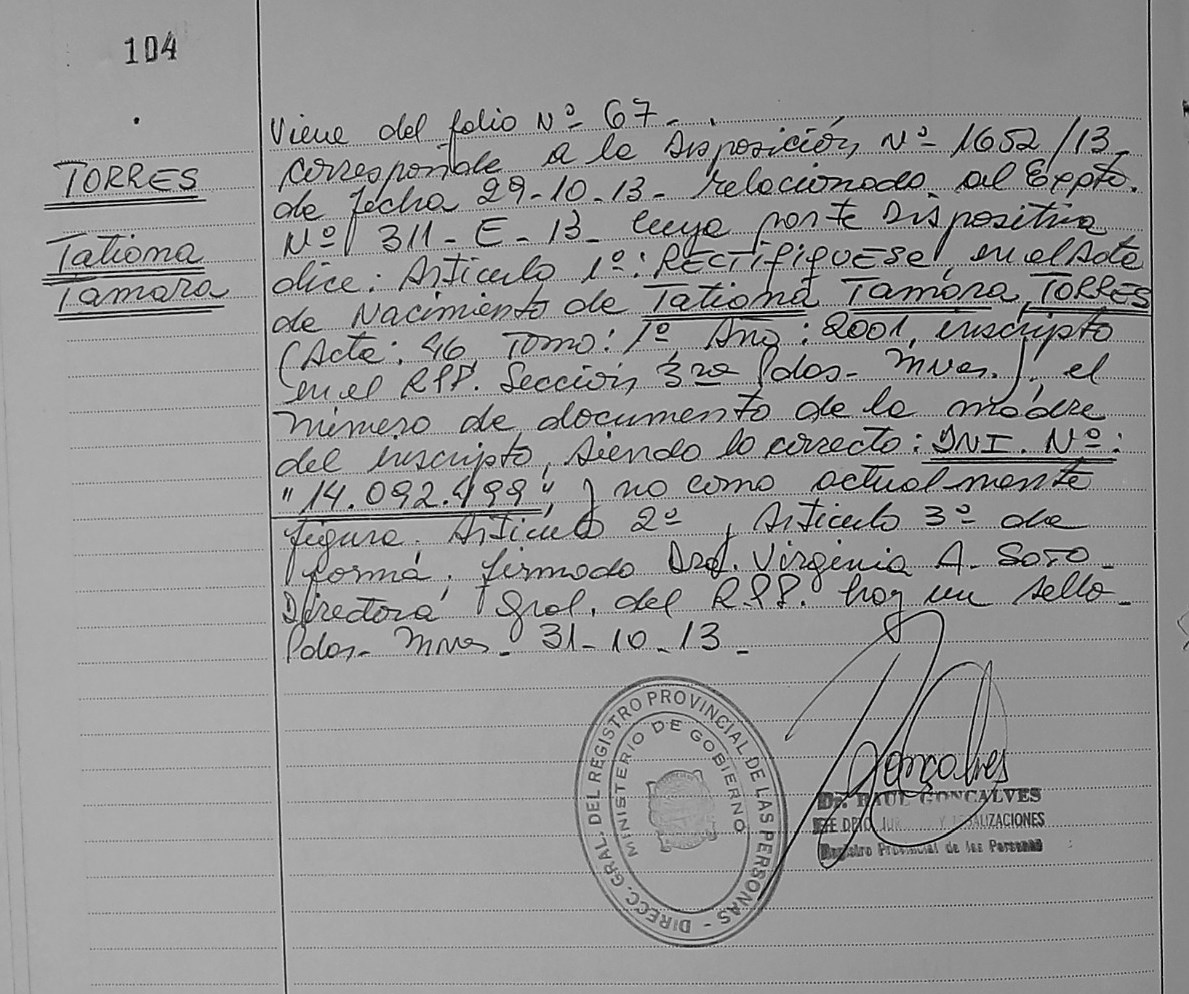 104
TORRES
Tatiana
Tamara
Viene del folio Nº 67.
Corresponde a la Disposición Nº 1652/13
de fecha 29-10-13- relacionado al Expte.
Nº 311-E-13- cuya parte Dispositiva
dice. Articulo 1º: RECTIFIQUESE, en el Acta
de Nacimiento de Tatiana Tamara TORRES
(Acta: 46, Tomo: 1º, Año: 2001, inscripto
en el RPP. Sección 3ra Pdas- Mnes.), el
número de documento de la madre
del inscripto, siendo lo correcto: DNI. Nº:
"14.092.499", y no como actualmente
figura. Articulo 2º, Articulo 3º de
forma. firmado Dra. Virginia A. Soto-
Directora Gral. del RPP. hay un sello-
Pdas- Mnes- 31-10-13-
DIRECC. GRAL. DEL REGISTRO PROVINCIAL DE LAS PERSONAS -
MINISTERIO DE GOBIERNO
Gonçalves
Dr. RAUL GONCALVES
JEFE DPTO. JUR Y LEGALIZACIONES
Registro Provincial de las Personas